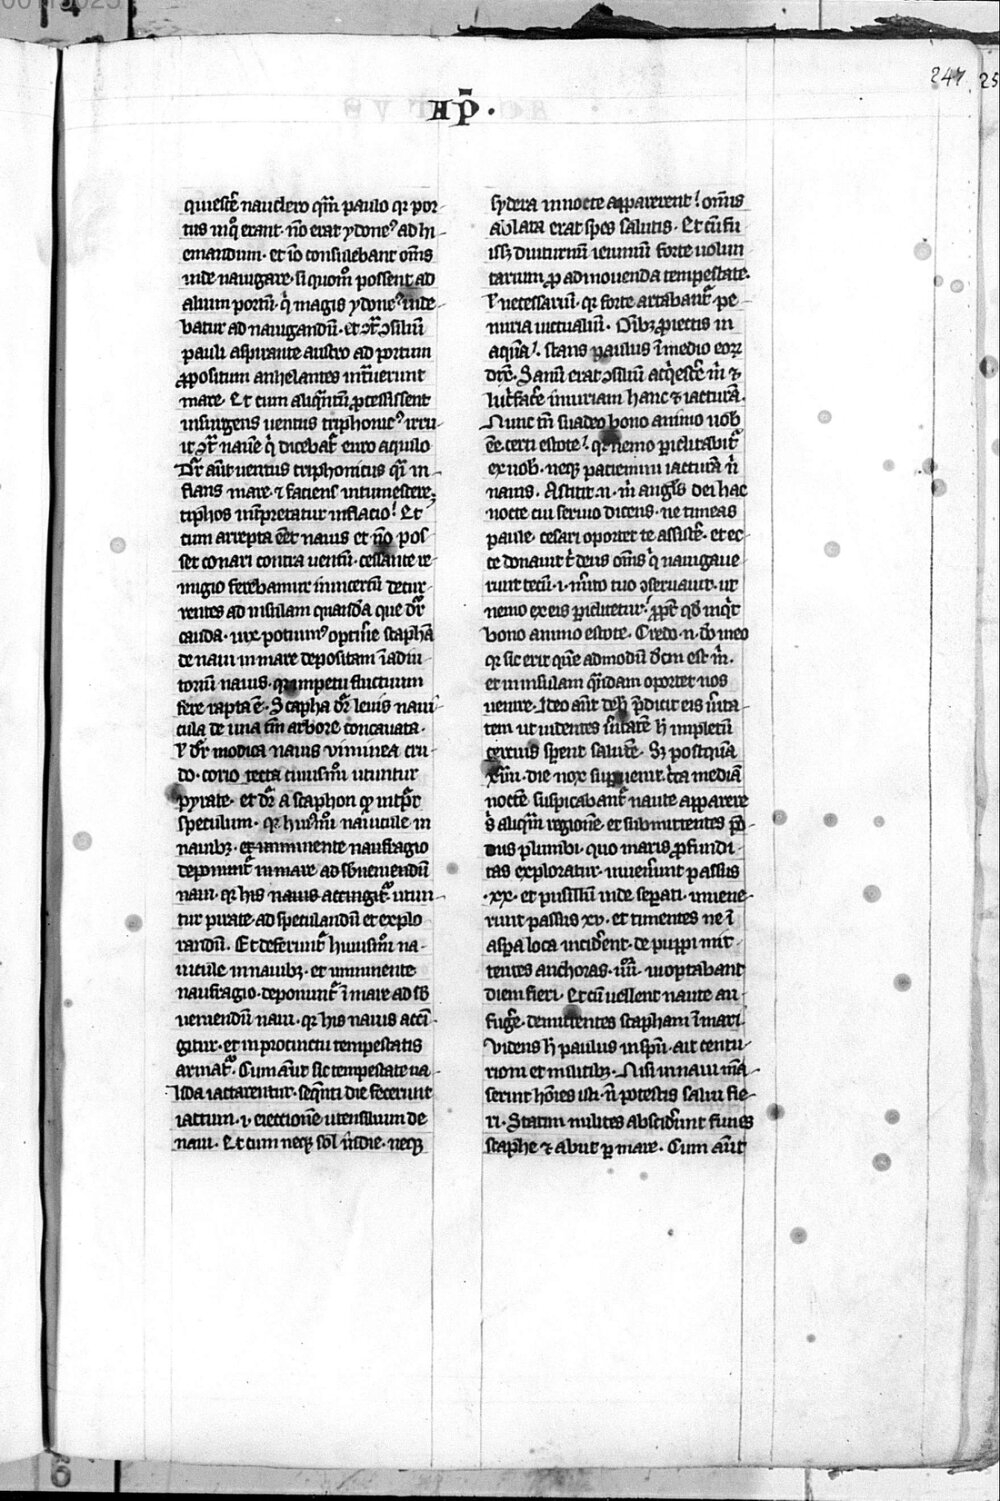 247 25
Ap̄ .
quiesc̄e nauclero q̄m paulo q̄ por
tus inq̊ erant. nō erat ydone⁹ ad hi
emandum. et iō consulebant om̄s
inde nauigare. si quom̊ possent ad
alium portū. q̇ magis ydone⁹ uide
batur ad nauigandū. et ꝯt̄ ꝯsiliū
pauli aspirante austro ad portum
ꝓpositum anhelantes int̄uerunt
mare. Et cum aliq̄ntū ꝓcessissent
insurgens uentus triphonic⁹ irru
it ꝯt̄ nauē q̇ dicebat̄ euro aquilo
Dr̄ aūt uentus triphonicus q̄i in
flans mare. ⁊ faciens intumescere.
tiphos int̄pretatur inflacio. Et
cum arrepta eēt nauis et nō pos
set conari contra uentū. cessante re
migio ferebamur in incertū decur
rentes ad insulam quandā que dr̄
cauda. uix potuim⁹ optinē scaphā
de naui in mare depositam ī adiu
toriū nauis. q̄ impetu fluctuum
fere rapta ē. Scapha dr̄ leuis naui
cula de una tm̄ arbore concauata.
ł dr̄ modica nauis viminea cru
do. corio tecta cuiusm̊i utuntur
pyrate. et dr̄ a scaphon qḋ int̄pr̄
speculum. q̄ hui⁹m̊i nauicule in
nauibꝫ. et imminente naufragio
deponunt̄ in mare ad sb̄ueniendū
naui. q̄ his nauis accingit̄. utun
tur pirate. ad speculandū et explo
randū. Et deferunt̄ huiusm̊i na
uicule in nauibꝫ. et imminente
naufragio. deponunt̄ ī mare ad sb̄
ueniendū naui. q̄ his nauis accī
gitur. et in procinctu tempestatis
armat̄. Cum aūt sic tempestate ua
lida iactarentur. seq̄nti die fecerunt
iactum. .i. eiectionē utensilium de
naui. Et cum neqꝫ sol īterdie. neqꝫ
sydera in nocte apparerent. om̄is
ablata erat spes salutis. Et cū fu
issꝫ diuturnū ieiuniū forte uolun
tarium ꝓ admouenda tempestate.
ł necessariū. q̄ forte artabant̄. pe
nuria uictualiū. Oībꝫ ꝓiectis in
aquā. stans paulus ī medio eoꝝ
dix̄. Sanū erat ꝯsiliū acq̇esc̄e m̄ ⁊
luc̄fac̄e iniuriam hanc ⁊ iacturā.
Nunc tn̄ suadeo bono animo uob̄
eē. certi estote. q̄ nemo piclitabit̄
ex uob̄. neqꝫ paciemini iacturā n̄
nauis. Astitit. n. m̄ angl̄s dei hac
nocte cui seruio dicens. ne timeas
paule. cesari oportet te assist̄e. et ec
ce donauit t̄ deus om̄s q̇ nauigaue
runt tecū. .i. m̄ito tuo ꝯseruauit. ut
nemo ex eis piclitetur. ꝓpt̄ qḋ inq̇t
bono animo estote. Credo. n. dō meo
q̄ sic erit quē admodū dc̄m est m̄.
et in insulam q̄ndam oportet nos
uenire. Ideo aūt de h̄ p̄dicit eis ūita
tem ut uidentes ūitatē h̄ impletū
cercius sp̄ent saluē. Sꝫ postquā
xiiii. die nox supuenit. c̄ca mediā
noctē suspicabant̄ naute apparere
s̄ aliq̄m regionē. et submittentes pō
dus plumbi. quo maris ꝓfundi
tas exploratur. inuen̄unt passus
.xx. et pusillū inde sep̄ati. inuene
runt passus xv. et timentes ne ī
asp̄a loca incid̄ent. de puppi mit
tentes anchoras. iiii. inoptabant
diem fieri. Et cū uellent naute au
fuḡe. demittentes scapham ī mari.
Videns h̄ paulus in sp̄u. ait centu
rioni et militibꝫ. Nisi in naui mā
serint hōies isti. n̄ potestis salui fie
ri. Statim milites abscid̄unt funes
scaphe ⁊ abiit p mare. Cum aūt